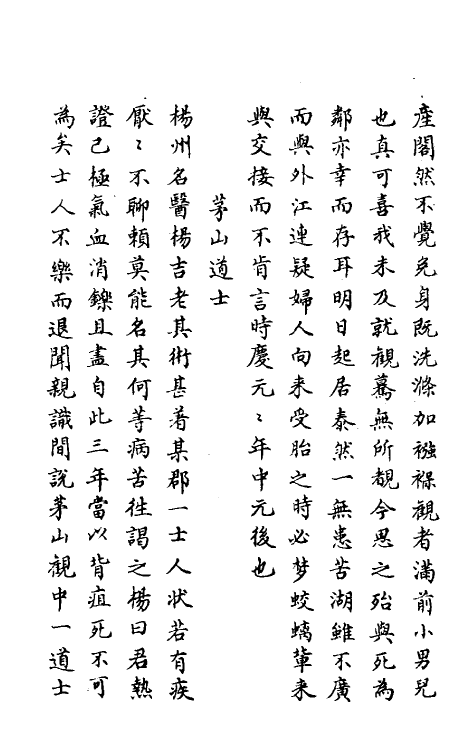 產閣然不覺免身既洗滌加襁褓觀者滿前小男兒
也真可喜我未及就觀驀無所覩今思之殆與死為
鄰亦幸而存耳明日起居泰然一無患苦湖雖不廣
而與外江連疑婦人向来受胎之時必梦蛟螭軰来
與交接而不肯言時慶元〻年中元後也
茅山道士
楊州名醫楊吉老其術甚著某郡一士人狀若有疾
厭〻不聊賴莫能名其何等病苦徃謁之楊曰君熱
證已極氣血消鑠且盡自此三年當以背疽死不可
為矣士人不樂而退聞親識間說茅山觀中一道士